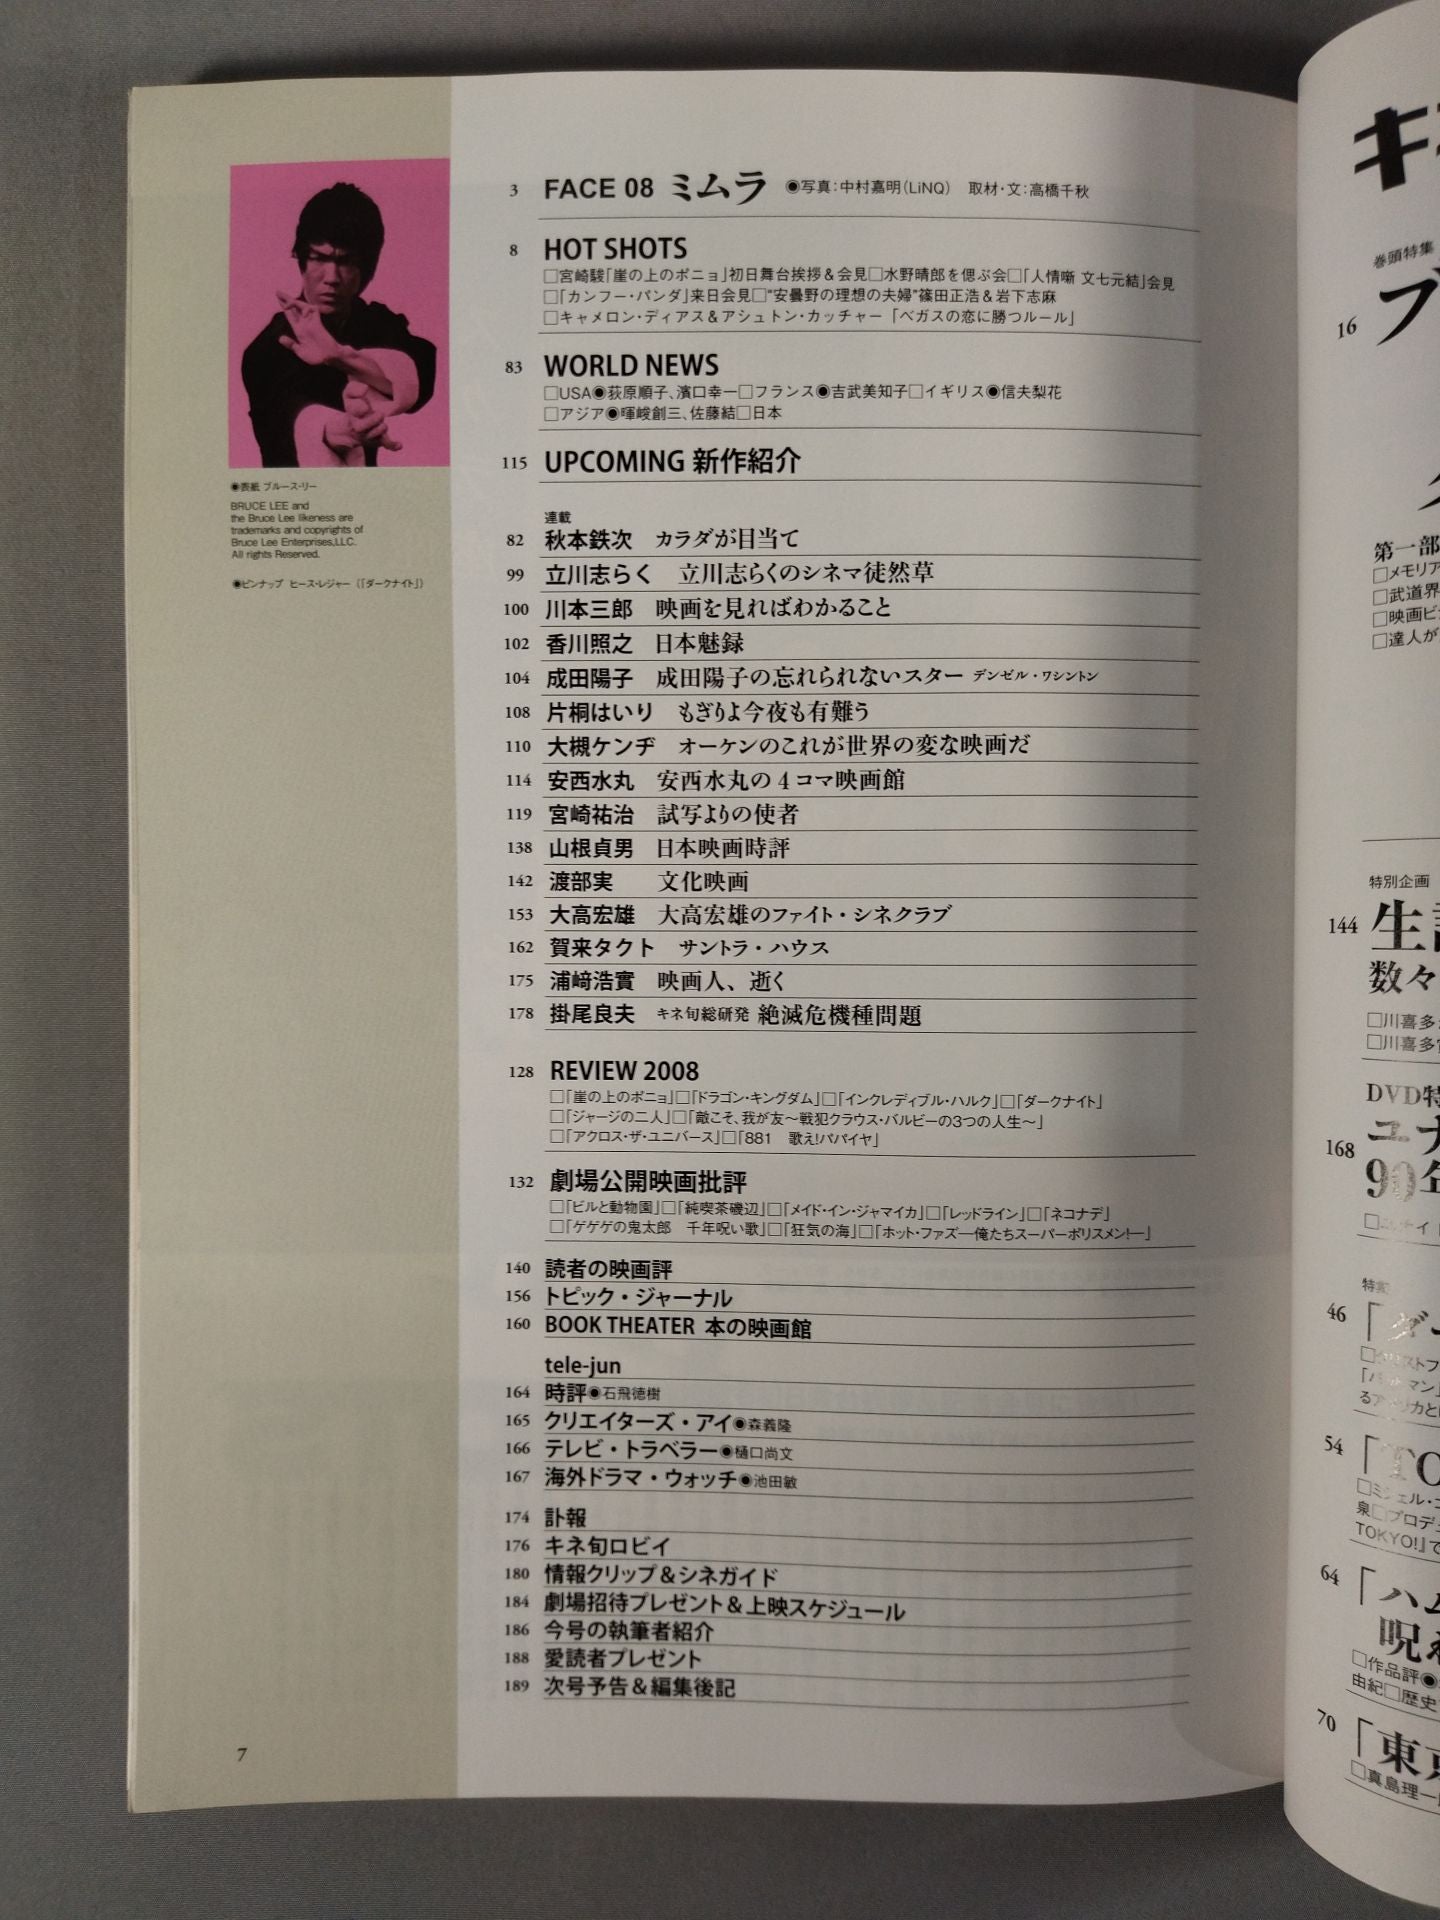 ◉表紙 ブルース・リー
BRUCE LEE and
the Bruce Lee likeness are
trademarks and copyrights of
Bruce Lee Enterprises,LLC.
All rights Reserved.
◉ピンナップ ヒース・レジャー（「ダークナイト」）
3 FACE 08 ミムラ ◉写真：中村嘉明（LiNQ） 取材・文：高橋千秋
8 HOT SHOTS
□宮崎駿「崖の上のポニョ」初日舞台挨拶＆会見□水野晴郎を偲ぶ会□「人情噺 文七元結」会見
□「カンフー・パンダ」来日会見□“安曇野の理想の夫婦”篠田正浩＆岩下志麻
□キャメロン・ディアス＆アシュトン・カッチャー「ベガスの恋に勝つルール」
83 WORLD NEWS
□USA◉荻原順子、濱口幸一□フランス◉吉武美知子□イギリス◉信夫梨花
□アジア◉暉峻創三、佐藤結□日本
115 UPCOMING 新作紹介
連載
82 秋本鉄次 カラダが目当て
99 立川志らく 立川志らくのシネマ徒然草
100 川本三郎 映画を見ればわかること
102 香川照之 日本魅録
104 成田陽子 成田陽子の忘れられないスター デンゼル・ワシントン
108 片桐はいり もぎりよ今夜も有難う
110 大槻ケンヂ オーケンのこれが世界の変な映画だ
114 安西水丸 安西水丸の4コマ映画館
119 宮崎祐治 試写よりの使者
138 山根貞男 日本映画時評
142 渡部実 文化映画
153 大高宏雄 大高宏雄のファイト・シネクラブ
162 賀来タクト サントラ・ハウス
175 浦﨑浩實 映画人、逝く
178 掛尾良夫 キネ旬総研発 絶滅危機種問題
128 REVIEW 2008
□「崖の上のポニョ」□「ドラゴン・キングダム」□「インクレディブル・ハルク」□「ダークナイト」
□「ジャージの二人」□「敵こそ、我が友〜戦犯クラウス・バルビーの3つの人生〜」
□「アクロス・ザ・ユニバース」□「881 歌え!パパイヤ」
132 劇場公開映画批評
□「ビルと動物園」□「純喫茶磯辺」□「メイド・イン・ジャマイカ」□「レッドライン」□「ネコナデ」
□「ゲゲゲの鬼太郎 千年呪い歌」□「狂気の海」□「ホット・ファズ―俺たちスーパーポリスメン!―」
140 読者の映画評
156 トピック・ジャーナル
160 BOOK THEATER 本の映画館
tele-jun
164 時評◉石飛徳樹
165 クリエイターズ・アイ◉森義隆
166 テレビ・トラベラー◉樋口尚文
167 海外ドラマ・ウォッチ◉池田敏
174 訃報
176 キネ旬ロビイ
180 情報クリップ＆シネガイド
184 劇場招待プレゼント＆上映スケジュール
186 今号の執筆者紹介
188 愛読者プレゼント
189 次号予告＆編集後記
7
キ
巻頭特集
16 ブ
第一部
□メモリア
□武道界
□映画ビ
□達人が
特別企画
144 生
数々
□川喜多
□川喜多
DVD特
168 ユナ
90年
46 「ダー
54 「TO
□ミシェル・
泉□プロデュ
TOKYO!』で
64 「ハム
呪
□作品評◉
由紀□歴史
70 「東
□真島理一